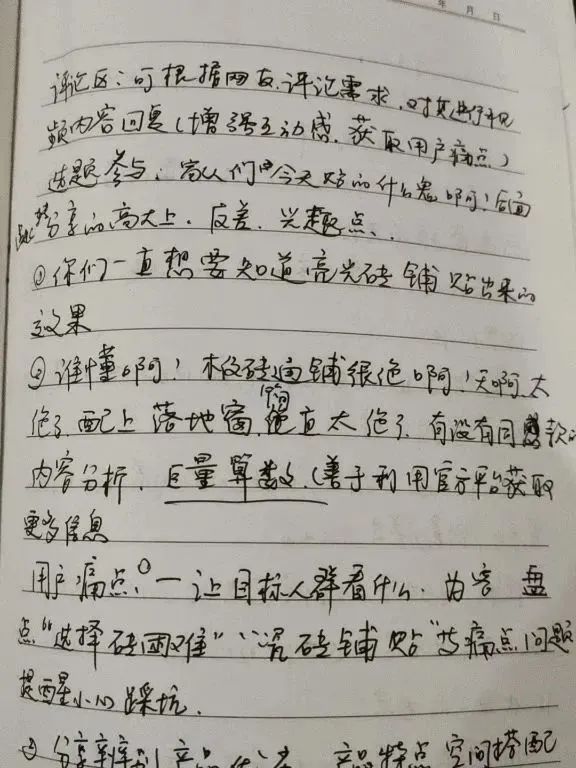 年 月 日
评论区：可根据网友评论需求，对其进行视
频内容回复（增强互动感，获取用户痛点）
选题参与：家人们"今天贴的什么 啊！后面
分享的高大上，反差，兴趣点、
①你们一直想要知道亮光砖铺贴出来的
效果
②谁懂啊！木纹砖通铺很绝啊！天啊太
绝了，配上落地窗，简直太绝了，有没有同 款的
内容分析，巨量算数，（善于利用官方平台获取
更多信息
用户痛点，①一让目标人群看什么，为客 盘
点"选择砖困难""瓷砖铺贴"等痛点问题
提醒小心踩坑，
② 分享 产品 产品特点 空间搭配